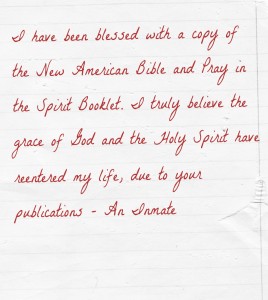 I have been blessed with a copy of
the New American Bible and Pray in
the Spirit Booklet. I truly believe the
grace of God and the Holy Spirit have
reentered my life, due to your
publications - An Inmate